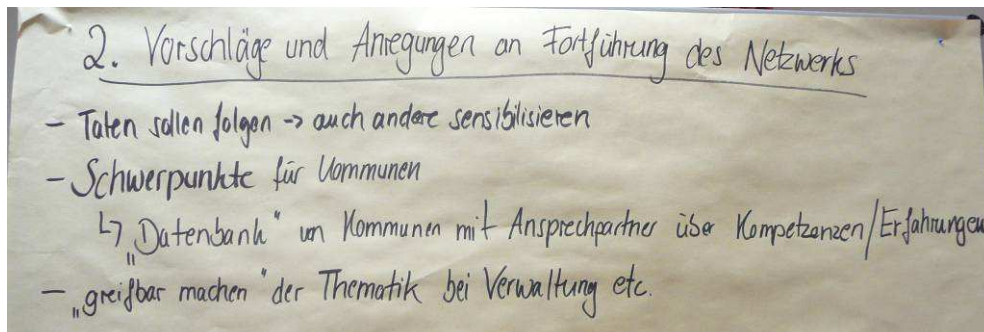 2. Vorschläge und Anregungen an Fortführung des Netzwerks
- Taten sollen folgen → auch andere sensibilisieren
- Schwerpunkte für Kommunen
↳ „Datenbank" von Kommunen mit Ansprechpartner über Kompetenzen/Erfahrungen
- „greifbar machen" der Thematik bei Verwaltung etc.